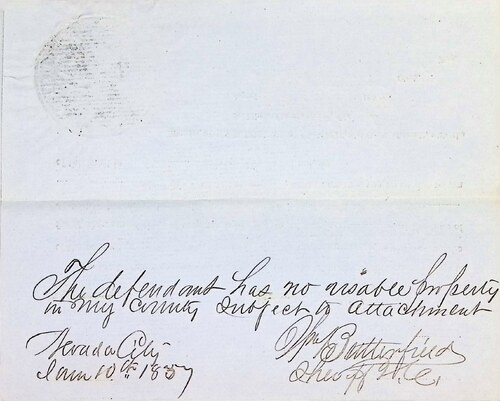 The defendant has no visable property
in my County Subject to attachment
Nevada City
Wm Butterfield
Sheriff N.C.